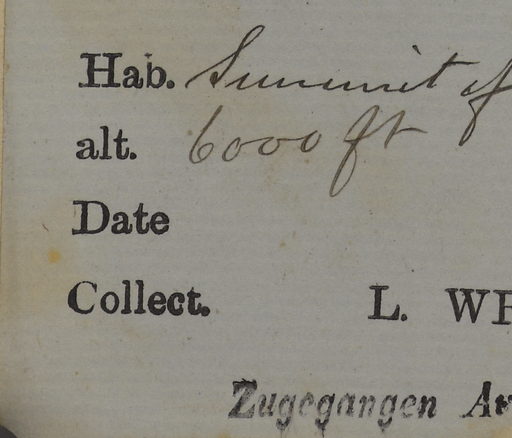 Hab. Summit of
alt. 6000 ft
Date
Collect. L.
Zugegangen